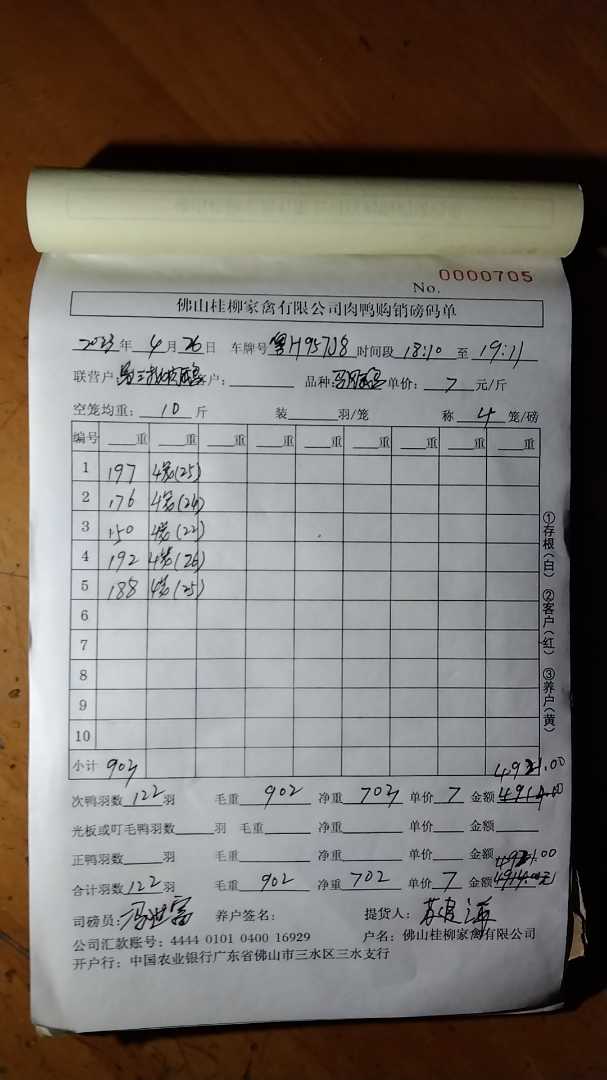 No. 0000705
佛山桂柳家禽有限公司肉鸭购销磅码单
2023年 4月26日 车牌号 粤H957J8 时间段 18:10 至 19:11
联营户: 客户: 品种: 单价: 7 元/斤
空笼均重: 10 斤 装 羽/笼 称 4 笼/磅
编号 重 重 重 重 重 重 重 重 重
1 197 4笼(25)
2 176 4笼(24)
3 150 4笼(22)
4 192 4笼(26)
5 188 4笼(25)
6
7
8
9
10
小计 903
4921.00
次鸭羽数 122 羽 毛重 902 净重 703 单价 7 金额 4914.00
光板或叮毛鸭羽数 羽 毛重 净重 单价 金额
正鸭羽数 羽 毛重 净重 单价 金额
4921.00
合计羽数 122 羽 毛重 902 净重 702 单价 7 金额 4914.00元
司磅员: 冯世富 养户签名: 提货人:
公司汇款账号: 4444 0101 0400 16929 户名: 佛山桂柳家禽有限公司
开户行: 中国农业银行广东省佛山市三水区三水支行
①存根(白) ②客户(红) ③养户(黄)